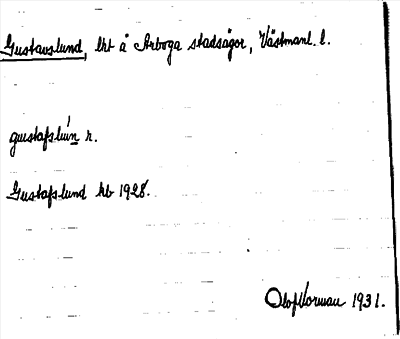 Gustavslund, lht å Arboga stadsägor, Västmanl. l.
gustafslun n.
Gustafslund kb 1928.
Olof Norman 1931.